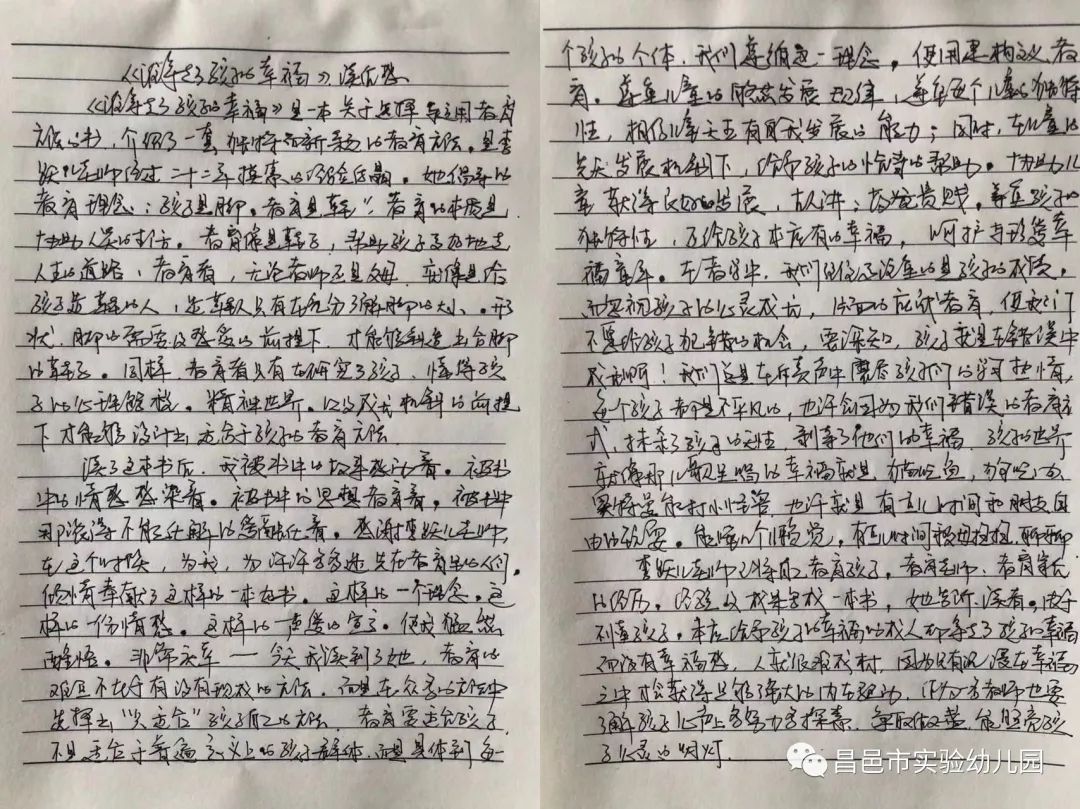 《谁拿走了孩子的幸福》读后感
《谁拿走了孩子的幸福》是一本关于选择与运用教育
方法的书，介绍了一套独特而新颖的教育方法。是李
跃儿老师经过二十二年摸索的经验结晶。她倡导的
教育理念：孩子是脚，教育是鞋”。教育的本质是
协助人完成。教育像是鞋子，帮助孩子更好地走
人生的道路，教育者，无论老师还是父母，就像是给
孩子造鞋的人，造鞋人只有在充分了解脚的大小、形
状、脚的需要及感受的前提下，才能够制造出合脚
的鞋子。同样，教育者只有在研究了孩子，懂得孩
子的心理需要，精神世界，以及成长机制的前提
下才能够设计出适合于孩子的教育方法。
读了这本书后，我被书中的故事感动着，被书
中的情感感染着，被书中的思想教育着，被书中
那浓得不能化解的爱
在这个时候，为我，为许许多多迷失在教育里的人们，
倾情奉献了这样的一本好书，这样的一个理念，这
样的一份情感，这样的一声爱的宣言，使我猛然
醒悟。非常庆幸——今天我读到了她，教育的
艰巨不在于有没有现成的方法，而是在众多的方法中
选择出“只适合”孩子自己的方法，教育要适合孩子，
不是适合于普遍意义上的孩子群体，而是具体到每
个孩子的个体，我们尊循这一理念，使用建构式教
育。尊重儿童的自然发展规律，尊重每个儿童的独特
性，相信儿童天生有自我发展的能力；同时，在儿童的
先天发展机制下，给予孩子的恰当的帮助。协助儿
童获得良好的发展，古人讲：尊重孩子的
独特性，还给孩子本应有的幸福，呵护与我爱幸
福童年。在教学中，我们往往注重的是孩子的成绩，
而忽视孩子的心灵成长，片面的应试教育，使我们
不愿给孩子犯错的机会，要深知，孩子就是在错误中
成长啊！我们总是在斥责声中磨尽孩子们的学习热情，
每个孩子都是不平凡的，也许会因为我们错误的教育方
式，抹杀了孩子的天性，剥夺了他们的幸福，孩子的世界
就像那儿歌里唱的幸福就是
也许就是有点儿时间和朋友自
由的玩耍。能睡个懒觉，有点儿时间被妈妈抱抱，聊聊
李跃儿老师已将自己教育孩子，教育老师、教育家长
的经历、经验及成果写成一本书，她告诉读者，由于
不懂孩子，本应给予孩子的幸福的成人却拿走了孩子的幸福
而没有幸福感，人就很难成材，因为只有沉浸在幸福
之中才会获得足够强大的内在驱动，作为教师也要
了解孩子心声上多努力多探索，争取做一盏能照亮孩
子心灵的明灯。
昌邑市实验幼儿园